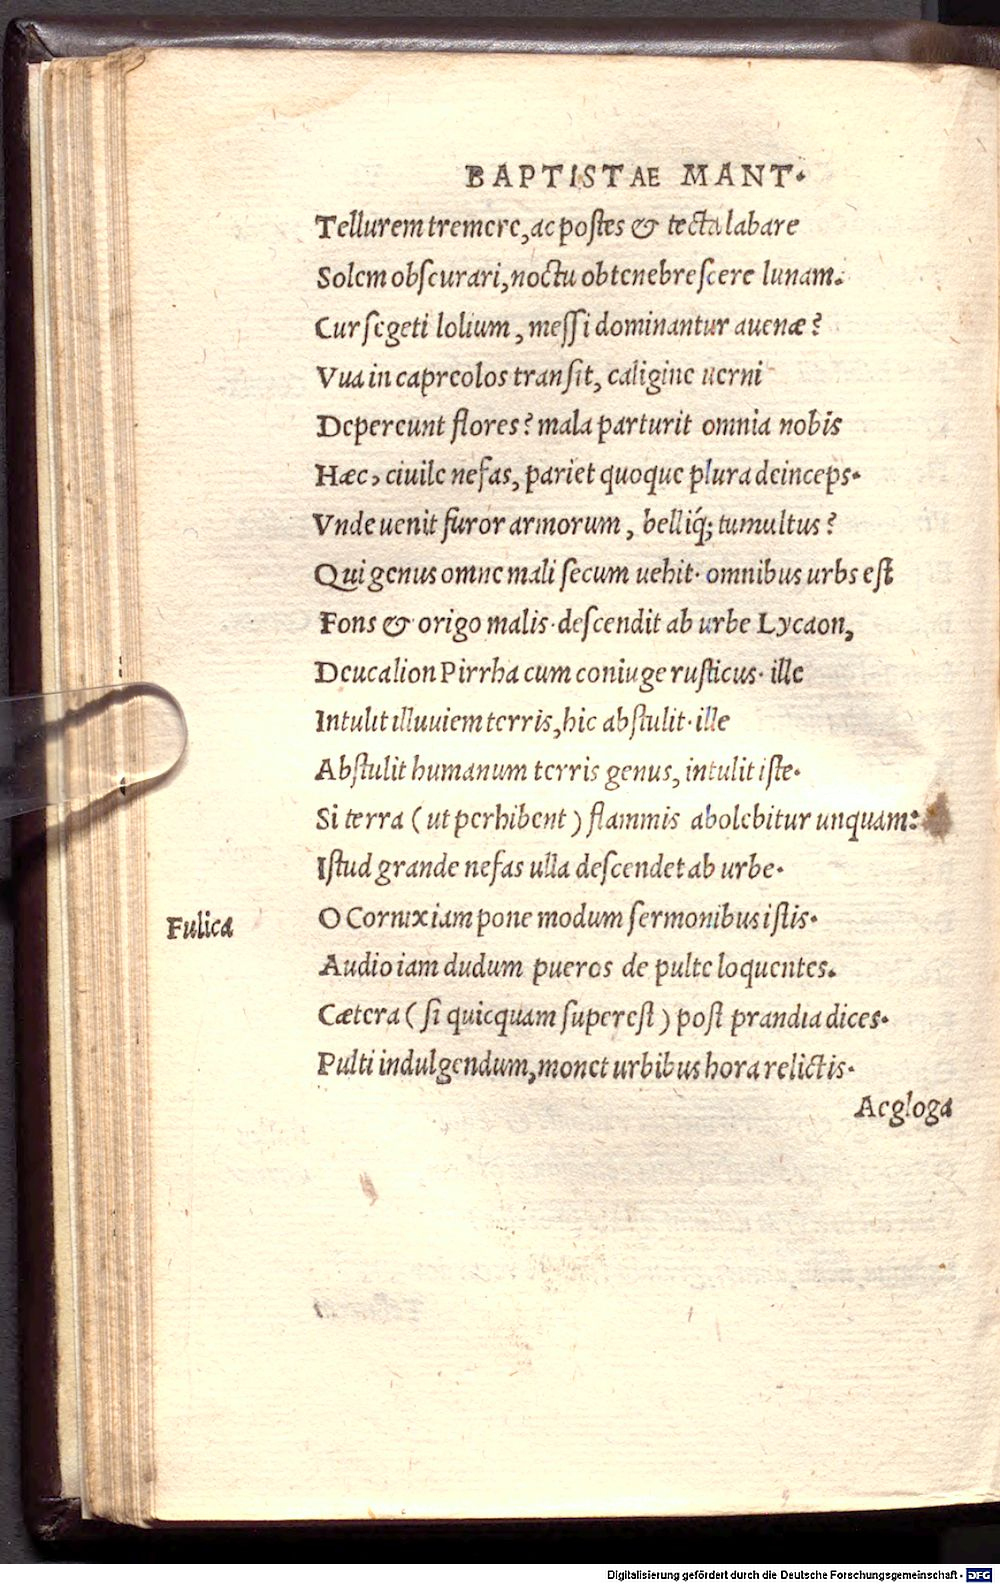 BAPTISTAE MANT.
Tellurem tremere, ac postes & tecta labare
Solem obscurari, noctu obtenebrescere lunam.
Cur segeti lolium, messi dominantur auenæ?
Vua in capreolos transit, caligine uerni
Depereunt flores? mala parturit omnia nobis
Hæc, ciuile nefas, pariet quoque plura deinceps.
Vnde uenit furor armorum, belliq́; tumultus?
Qui genus omne mali secum uehit. omnibus urbs est
Fons & origo malis. descendit ab urbe Lycaon,
Deucalion Pirrha cum coniuge rusticus. ille
Intulit illuuiem terris, hic abstulit. ille
Abstulit humanum terris genus, intulit iste.
Si terra (ut perhibent) flammis abolebitur unquam:
Istud grande nefas ulla descendet ab urbe.
Fulica O Cornix iam pone modum sermonibus istis.
Audio iam dudum pueros de pulte loquentes.
Cætera (si quicquam superest) post prandia dices.
Pulti indulgendum, monet urbibus hora relictis.
Aegloga
Digitalisierung gefördert durch die Deutsche Forschungsgemeinschaft - DFG